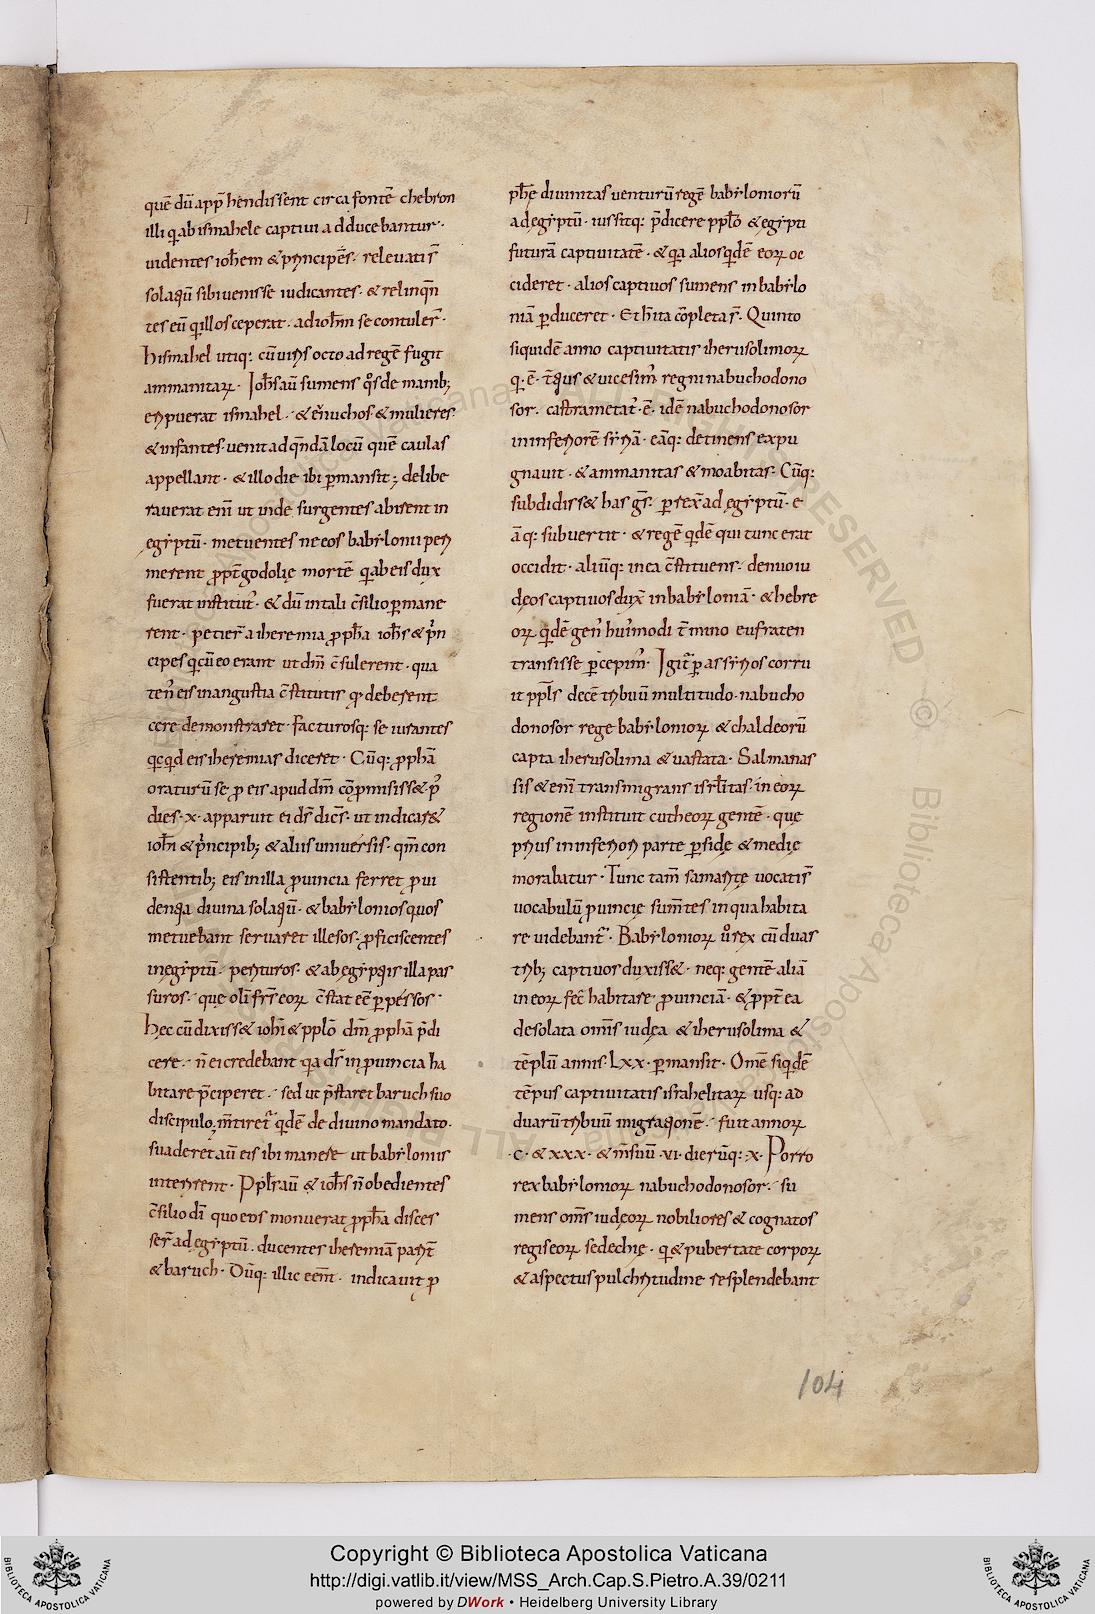 quē dū app̄hendissent circa fontē chebron
illi q̄ ab ismahele captivi adducebantur·
uidentes ioh̄em & p̄ncipēs· releuati s̄
solaqū sibi uenisse iudicantes· & relinq̄n
tes eū q̄ illos ceperat· ad ioh̄m se contuler̄·
hismahel utiq: cū uiris octo ad regē fugit
ammanitaꝝ· Ioh̄s aū sumens q̊s de manib;
eripuerat ismahel· & eunuchos & mulieres
& infantes· uenit ad q̄ndā locū quē caulas
appellant· & illo die ibi p̱mansit; delibe
rauerat eni̅ ut inde surgentes abirent in
ęgiptū· metuentes ne eos babilonii peri
merent ꝓpt̄ godolię mortē q̄ ab eis dux
fuerat institut᾽· & dū in tali c̄silio p̱mane
rent· petier̄ a iheremia ꝓph̄a ioh̄s & p̄n
cipes q̄ cū eo erant ut dm̄ c̄sulerent· qua
ten᾽ eis in angustia c̄stitutis qͥd deberent
cere demonstraret· facturosq: se iurantes
qͥcqͥd eis iheremias diceret· Cūq: ꝓph̄a
oraturū se ꝓ eis apud dm̄ cō̄promisiss& p᾽
dies· x· apparuit ei ds̄ dicēs· ut indicar&
ioh̄i & p̄ncipib; & aliis uniuersis· qm̄ con
sistentib; eis in illa ꝓuincia ferret ꝓui
dentia diuina solatiū· & babilonios quos
metuebant seruaret illesos· ꝓficiscentes
in egiptū· perituros· & ab egiptiis illa pas
suros· que oli̅ fr̄s eoꝝ c̄stat eē̄ perpessos·
hęc cū dixiss& ioh̄i & pplō dm̄ ꝓph̄a p̄di
cere· n̄ ei credebant q̄a ds̄ in ꝓuincia ha
bitare p̄ciperet· sed ut p̄staret baruch suo
discipulo m̄tiret᾽ q̄dē de diuino mandato·
suaderet aū eis ibi manere ut babiloniis
interirent· Pplꝰ aū & ioh̄s n̄ obedientes
c̄silio dī quo eos monuerat ꝓph̄a disces
ser̄ ad egiptū· ducentes iheremiā parit̄
& baruch· Dūq: illic eēnt· indicauit ꝓ
ph̄ę diuinitas uenturū regē babiloniorū
ad egiptū· iussitq: p̄dicere pplō & egipti
futurā captiuitatē· & q̄a alios q̄dē eoꝝ oc
cideret· alios captiuos sumens in babilo
niā p̱duceret· Et h̄ ita cō̄pleta s̄· Quinto
siquidē anno captiuitatis iherusolimoꝝ
q· ē· t̄tius & uicesim᾽ regni nabuchodono
sor· castrametat᾽· ē· idē nabuchodonosor
in inferiorē siriā· eāq: detinens expu
gnauit· & ammanitas & moabitas· Cūq:
subdidiss& has gēs· p̱rexit ad ęgiptū· e
āq: subuertit· & regē q̄dē qui tunc erat
occidit· aliūq: in ea c̄stituens· denuo iu
dęos captiuos duxit in babiloniā· & hebre
oꝝ q̄dē gen᾽ hui᾽modi t̄mino eufraten
transisse p̱cepim᾽· Igit᾽ p̱ assirios corru
it pplꝰs decē tribuū multitudo· nabucho
donosor rege babilonioꝝ & chaldeorū
capta iherusolima & uastata· Salmanas
sis & eni̅ transmigrans isrl̄itas· in eoꝝ
regionē instituit cutheoꝝ gentē· que
prius in inferiori parte p̱sidę & medię
morabatur· Tunc tam̄ samaritę uocati s̄
uocabulū ꝓuincię sum̄tes in qua habita
re uidebant᾽· Babilonioꝝ ůrex cū duas
trib; captiuos duxiss&· neq: gentē aliā
in eoꝝ fec̄ habitare ꝓuinciā· & ꝓpt̄ ea
desolata om̄s iudęa & iherusolima &
tē̄plū annis· Lxx· p̱mansit· Om̄e siq̄dē
tē̄pus captiuitatis israhelitaꝝ usq: ad
duarū tribuū migrationē· fuit annoꝝ
·c· & xxx· & m̄suū ·vi· dierūq: ·x· Porro
rex babilonioꝝ nabuchodonosor· su
mens om̄s iudęoꝝ nobiliores & cognatos
regis eoꝝ sedechię· q̄ & pubertate corpoꝝ
& aspectus pulchritudine resplendebant
104
Copyright © Biblioteca Apostolica Vaticana
http://digi.vatlib.it/view/MSS_Arch.Cap.S.Pietro.A.39/0211
powered by DWork • Heidelberg University Library